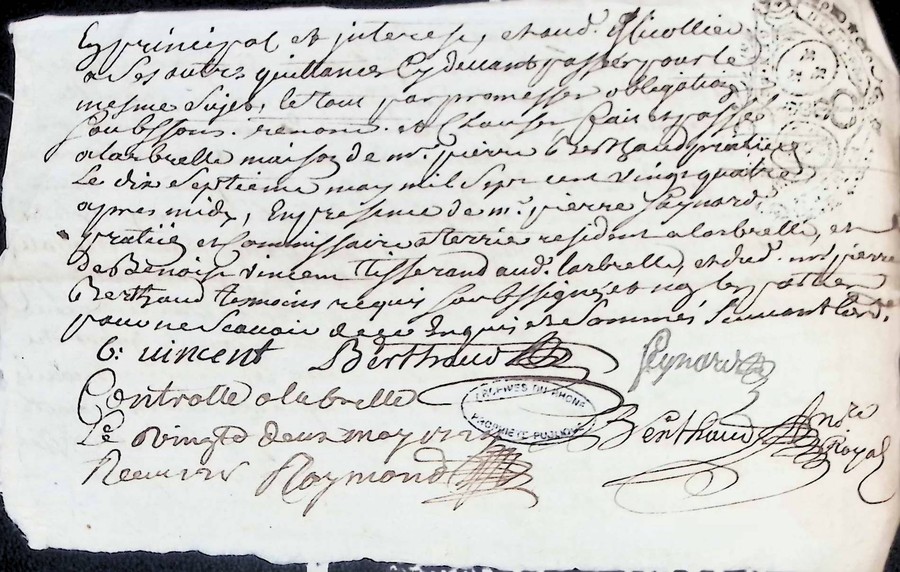 En principal et interest, et aud. Sr Guollier
a ses autres quittances cy devant passées pour le
mesme sujet, le tout par promesses obligations
soubmissions. renonc. et clauses fait et passé
a larbrelle maison de mr. pierre Berthaud praticien
Le dix septieme may mil sept cent vingt quatre
apres midy, En presence de mr. pierre Peynard
praticien et commissaire a terrier resident a larbrelle, et
de Benoist vincent tisserand aud. larbrelle, et dud. mr. pierre
Berthaud temoins requis soubssignés, et non les parties
pour ne scavoir de ce Enquis et sommés suivant lord.
b: vincent Berthaud Peynard
Controlle a labrelle
Le vingt deux may 1724
ARCHIVES DU RHONE
PROPRIETE PUBLIQUE
Berthaud Nre Royal
Receu Raymond